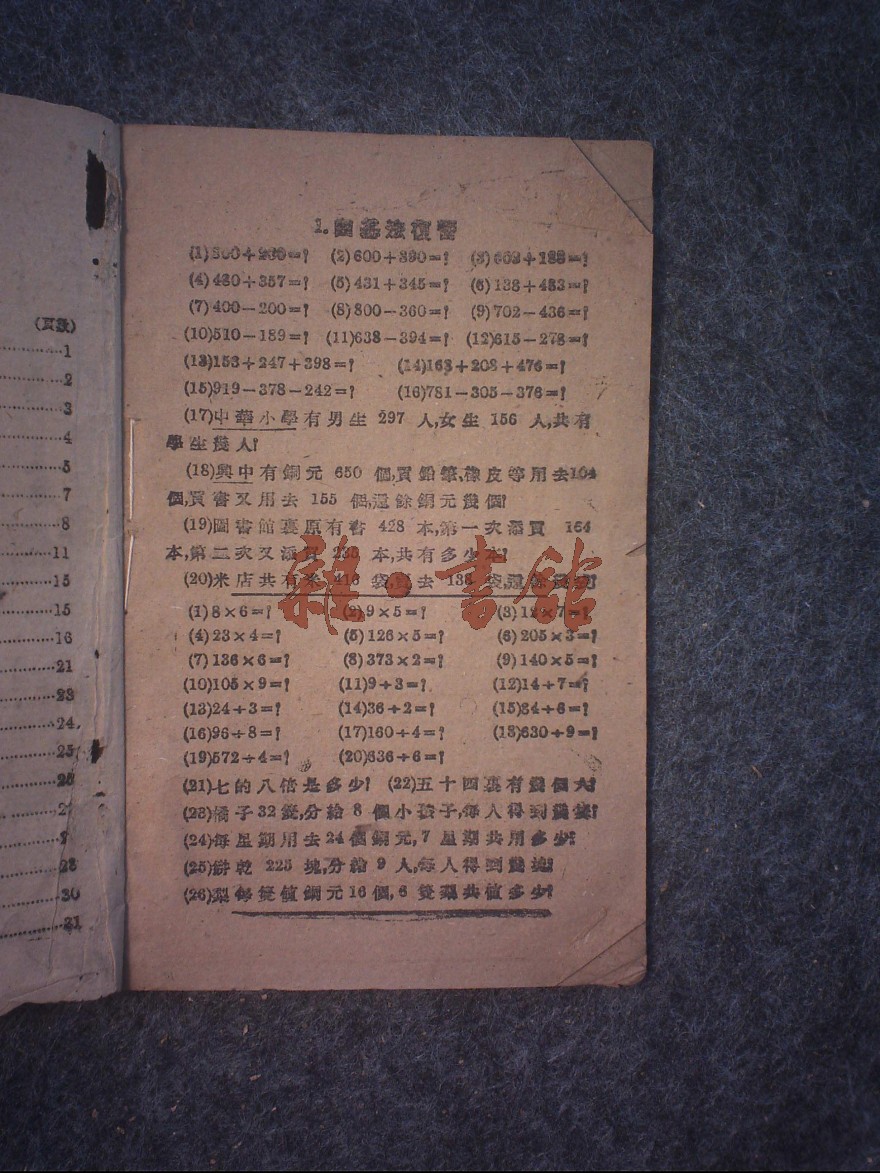 (頁數)
1
2
3
4
5
7
8
11
13
15
16
21
23
24
25
26
28
30
1.四基法復習
(2)600+390=?
(4)430+357=? (5)431+345=? (6)138+483=?
(7)400-200=? (8)800-360=? (9)702-436=?
(10)510-189=? (11)638-394=? (12)615-278=?
(13)153+247+398=? (14)163+208+476=?
(15)919-378-242=? (16)781-305-376=?
(17)中華小學有男生 297 人,女生 156 人,共有
學生幾人?
(18)興中有銅元 650 個,買鉛筆,橡皮等用去104
個,買書又用去 155 個,還餘銅元幾個?
(19)圖書館裏原有書 428 本,第一次添買 164
本,第二次又添買 235 本,共有多少本?
(20)米店共有米 416 袋,賣去 138 袋,還餘幾袋?
雜·書館
(1)8×6=? (2)9×5=? (3)12×7=?
(4)23×4=? (5)126×5=? (6)205×3=?
(7)136×6=? (8)373×2=? (9)140×5=?
(10)105×9=? (11)9÷3=? (12)14÷7=?
(13)24÷3=? (14)36÷2=? (15)84÷6=?
(16)96÷8=? (17)160÷4=? (18)630÷9=?
(19)572÷4=? (20)636÷6=?
(21)七的八倍是多少? (22)五十四裏有幾個六?
(23)橘子32隻,分給 8 個小孩子,每人得到幾隻?
(24)每星期用去24個銅元,7 星期共用多少?
(25)餅乾 225 塊,分給 9 人,每人得到幾塊?
(26)梨每隻值銅元16個,6 隻梨共值多少?